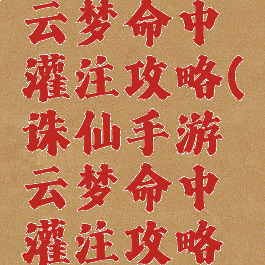 云梦命中
灌注攻略(
诛仙手游
云梦命中
灌注攻略